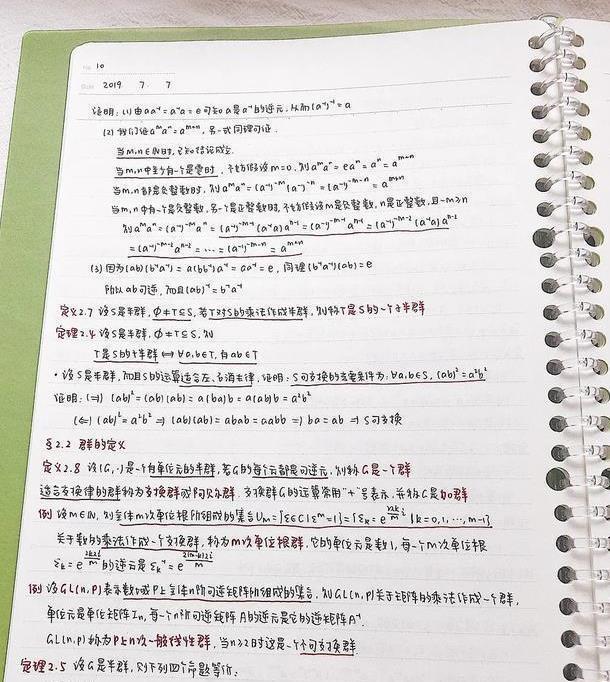 No. 10
Date 2019 7 7
证明：(1) 由aa⁻¹=a⁻¹a=e可知a是a⁻¹的逆元，从而(a⁻¹)⁻¹=a
(2) 我们证aᵐaⁿ=aᵐ⁺ⁿ，另一式同理可证.
当m,n∈ℕ时，已知结论成立.
当m,n中至少有一个是零时，不妨假设m=0，则aᵐaⁿ=eaⁿ=aⁿ=aᵐ⁺ⁿ
当m,n都是负整数时，则aᵐaⁿ=(a⁻¹)⁻ᵐ(a⁻¹)⁻ⁿ=(a⁻¹)⁻ᵐ⁻ⁿ=aᵐ⁺ⁿ
当m,n中有一个是负整数，另一个是正整数时，不妨假设m是负整数，n是正整数，且-m≥n
则aᵐaⁿ=(a⁻¹)⁻ᵐaⁿ=(a⁻¹)⁻ᵐ⁻¹(a⁻¹a)aⁿ⁻¹=(a⁻¹)⁻ᵐ⁻¹aⁿ⁻¹=(a⁻¹)⁻ᵐ⁻²(a⁻¹a)aⁿ⁻²
=(a⁻¹)⁻ᵐ⁻²aⁿ⁻²=…=(a⁻¹)⁻ᵐ⁻ⁿ=aᵐ⁺ⁿ
(3) 因为(ab)(b⁻¹a⁻¹)=a(bb⁻¹)a⁻¹=aa⁻¹=e，同理(b⁻¹a⁻¹)(ab)=e
所以ab可逆，而且(ab)⁻¹=b⁻¹a⁻¹
定义2.7 设S是半群，∅≠T⊆S，若T对S的乘法作成半群，则称T是S的一个子半群
定理2.4 设S是半群，∅≠T⊆S，则
T是S的子半群⟺∀a,b∈T，有ab∈T
·设S是半群，而且S的运算适合左、右消去律，证明：S可交换的充要条件为：∀a,b∈S，(ab)²=a²b²
证明：(⇒) (ab)²=(ab)(ab)=a(ba)b=a(ab)b=a²b²
(⇐) (ab)²=a²b²⇒(ab)(ab)=abab=aabb⇒ba=ab⇒S可交换
§2.2 群的定义
定义2.8 设(G,·)是一个有单位元的半群，若G的每个元都是可逆元，则称G是一个群
适合交换律的群称为交换群或阿贝尔群. 交换群G的运算常用"+"号表示，并称G是加群
例 设m∈ℕ，则全体m次单位根所组成的集合Uₘ={ε∈ℂ|εᵐ=1}={εₖ=e^(2kπi/m)|k=0,1,…,m-1}
关于数的乘法作成一个交换群，称为m次单位根群，它的单位元是数1，每一个m次单位根
εₖ=e^(2kπi/m)的逆元是εₖ⁻¹=e^(2(m-k)πi/m)
例 设GL(n,P)表示数域P上全体n阶可逆矩阵所组成的集合，则GL(n,P)关于矩阵的乘法作成一个群，
单位元是单位矩阵Iₙ，每一个n阶可逆矩阵A的逆元是它的逆矩阵A⁻¹.
GL(n,P)称为P上n次一般线性群，当n≥2时这是一个不可交换群
定理2.5 设G是半群，则下列四个命题等价：